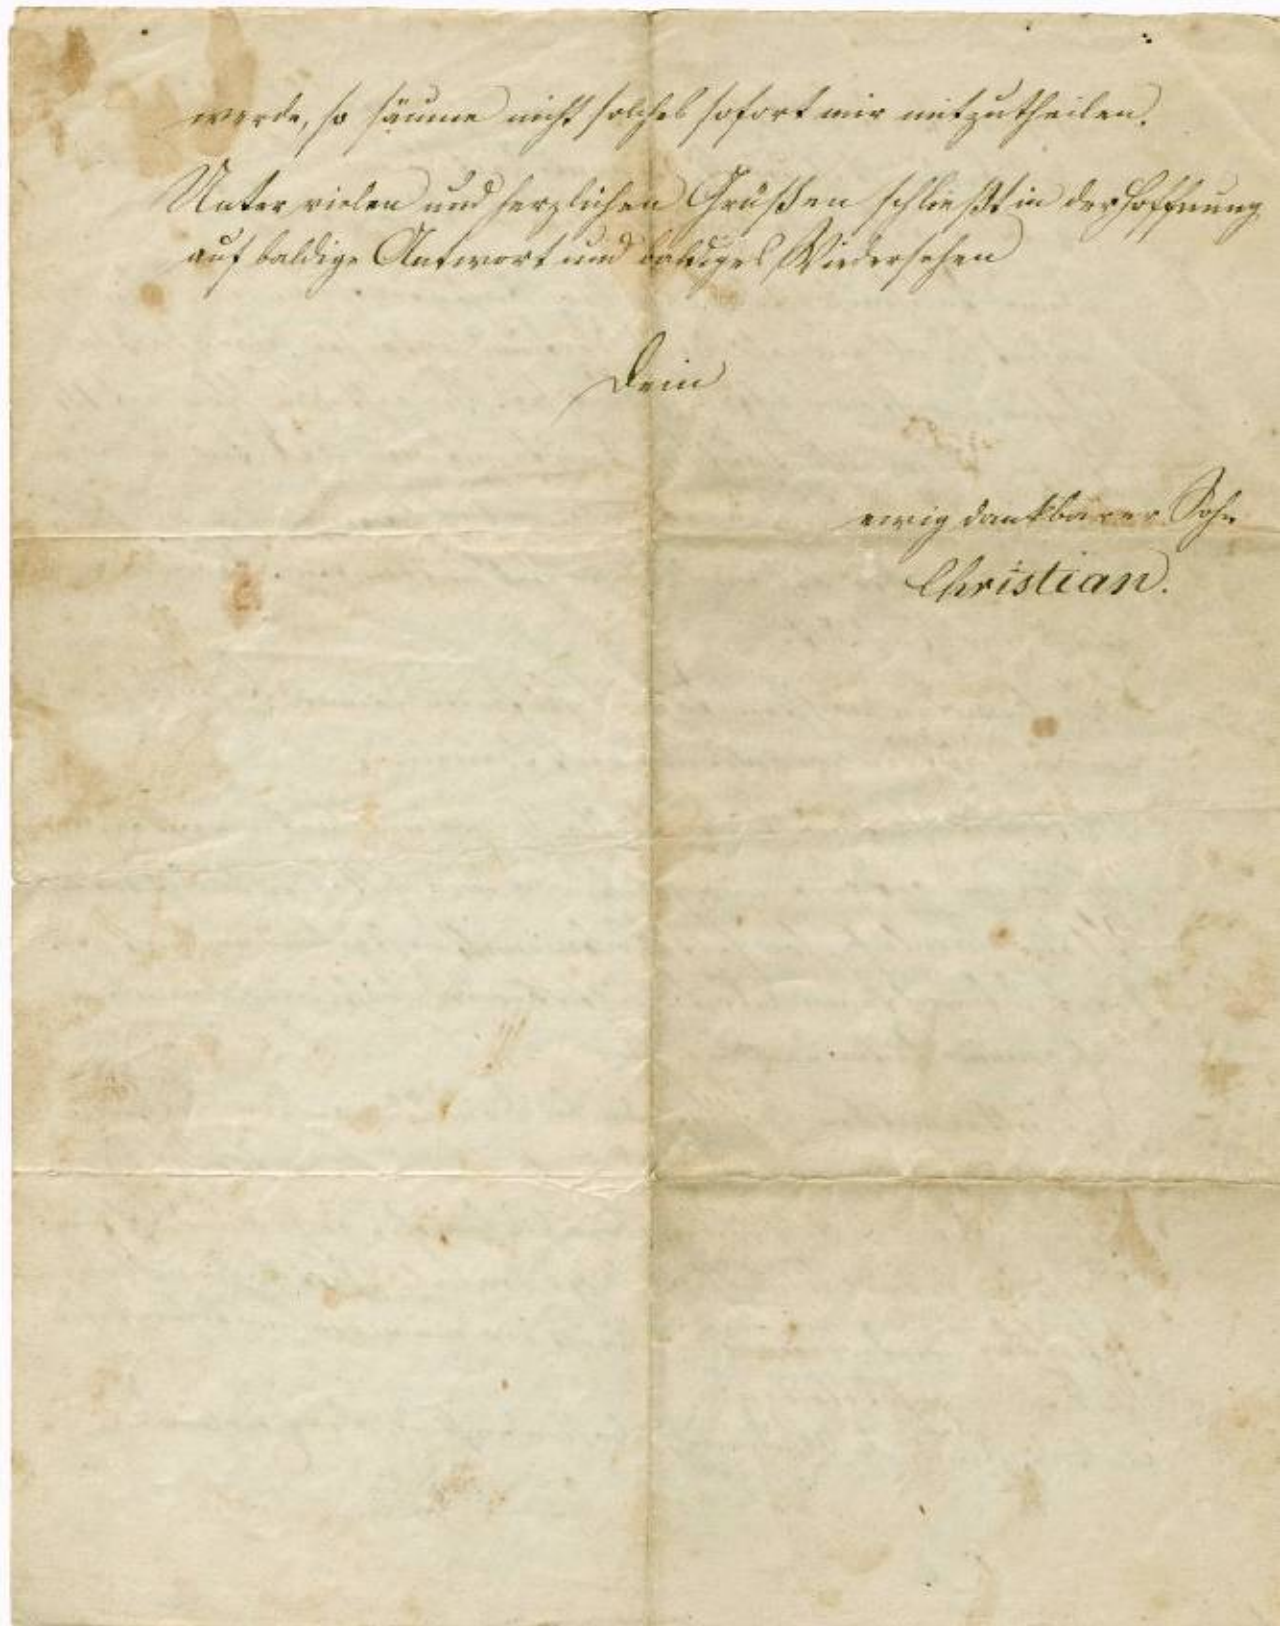 werde, so säume nicht solches sofort mir mitzutheilen.
Unter vielen und herzlichen Grüßen schließt in der Hoffnung
auf baldige Antwort und baldiges Wiedersehen
Dein
ewig dankbarer Sohn
Christian.